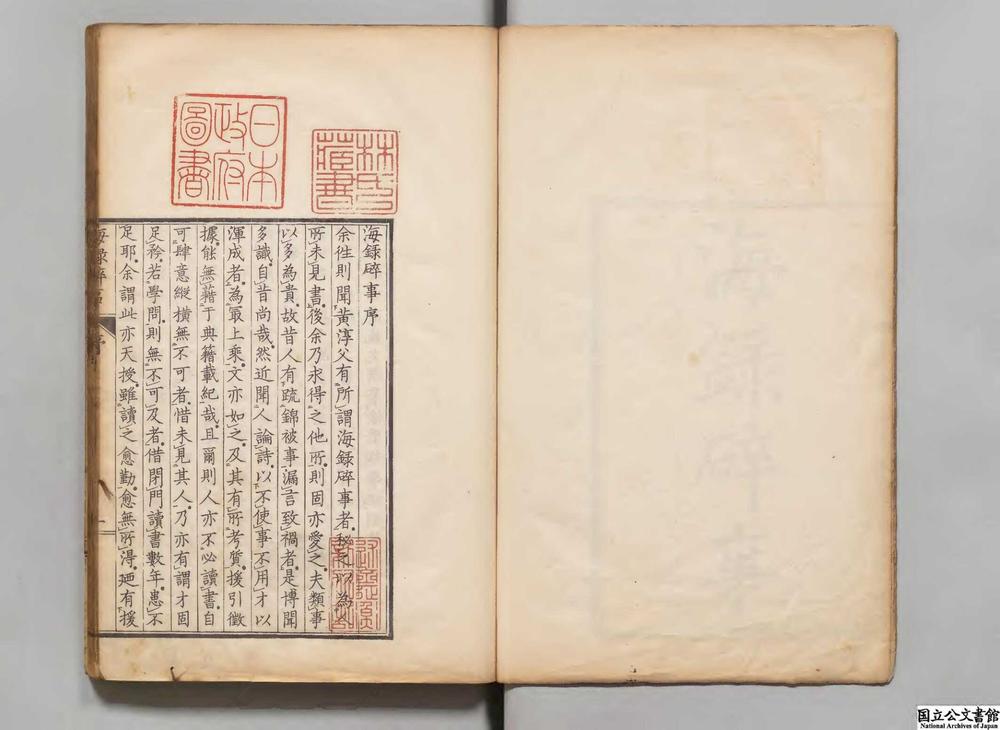 海録碎事序
余徃則聞黄淳父有所謂海録碎事者秘之以為人
所未見書後余乃求得之他所則固亦愛之夫類事
以多為貴故昔人有疏錦被事漏言致禍者是博聞
多識自昔尚哉然近聞人論詩以不使事不用才以
渾成者為最上乘文亦如之及其有所考質援引徴
據能無藉于典籍載紀哉且爾則人亦不必讀書自
可肆意縱横無不可者惜未見其人乃亦有謂才固
足矜若學問則無不可及者借閉門讀書數年患不
足耶余謂此亦天授雖讀之愈勤愈無所得廼有援
海録碎事
序
一
日本
政府
圖書
林氏
藏書
国立公文書館
National Archives of Japan